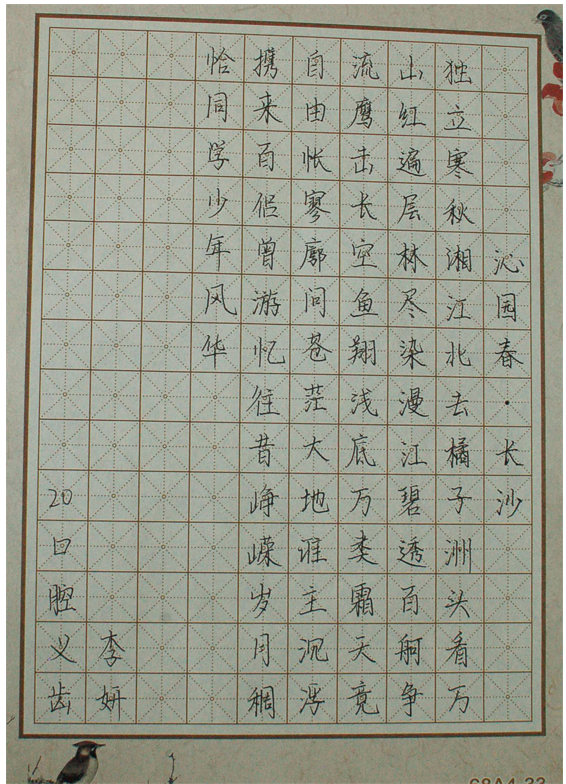 沁园春·长沙
独立寒秋湘江北去橘子洲头看万
山红遍层林尽染漫江碧透百舸争
流鹰击长空鱼翔浅底万类霜天竟
自由怅寥廓问苍茫大地谁主沉浮
携来百侣曾游忆往昔峥嵘岁月稠
恰同学少年风华
李妍
20口腔义齿